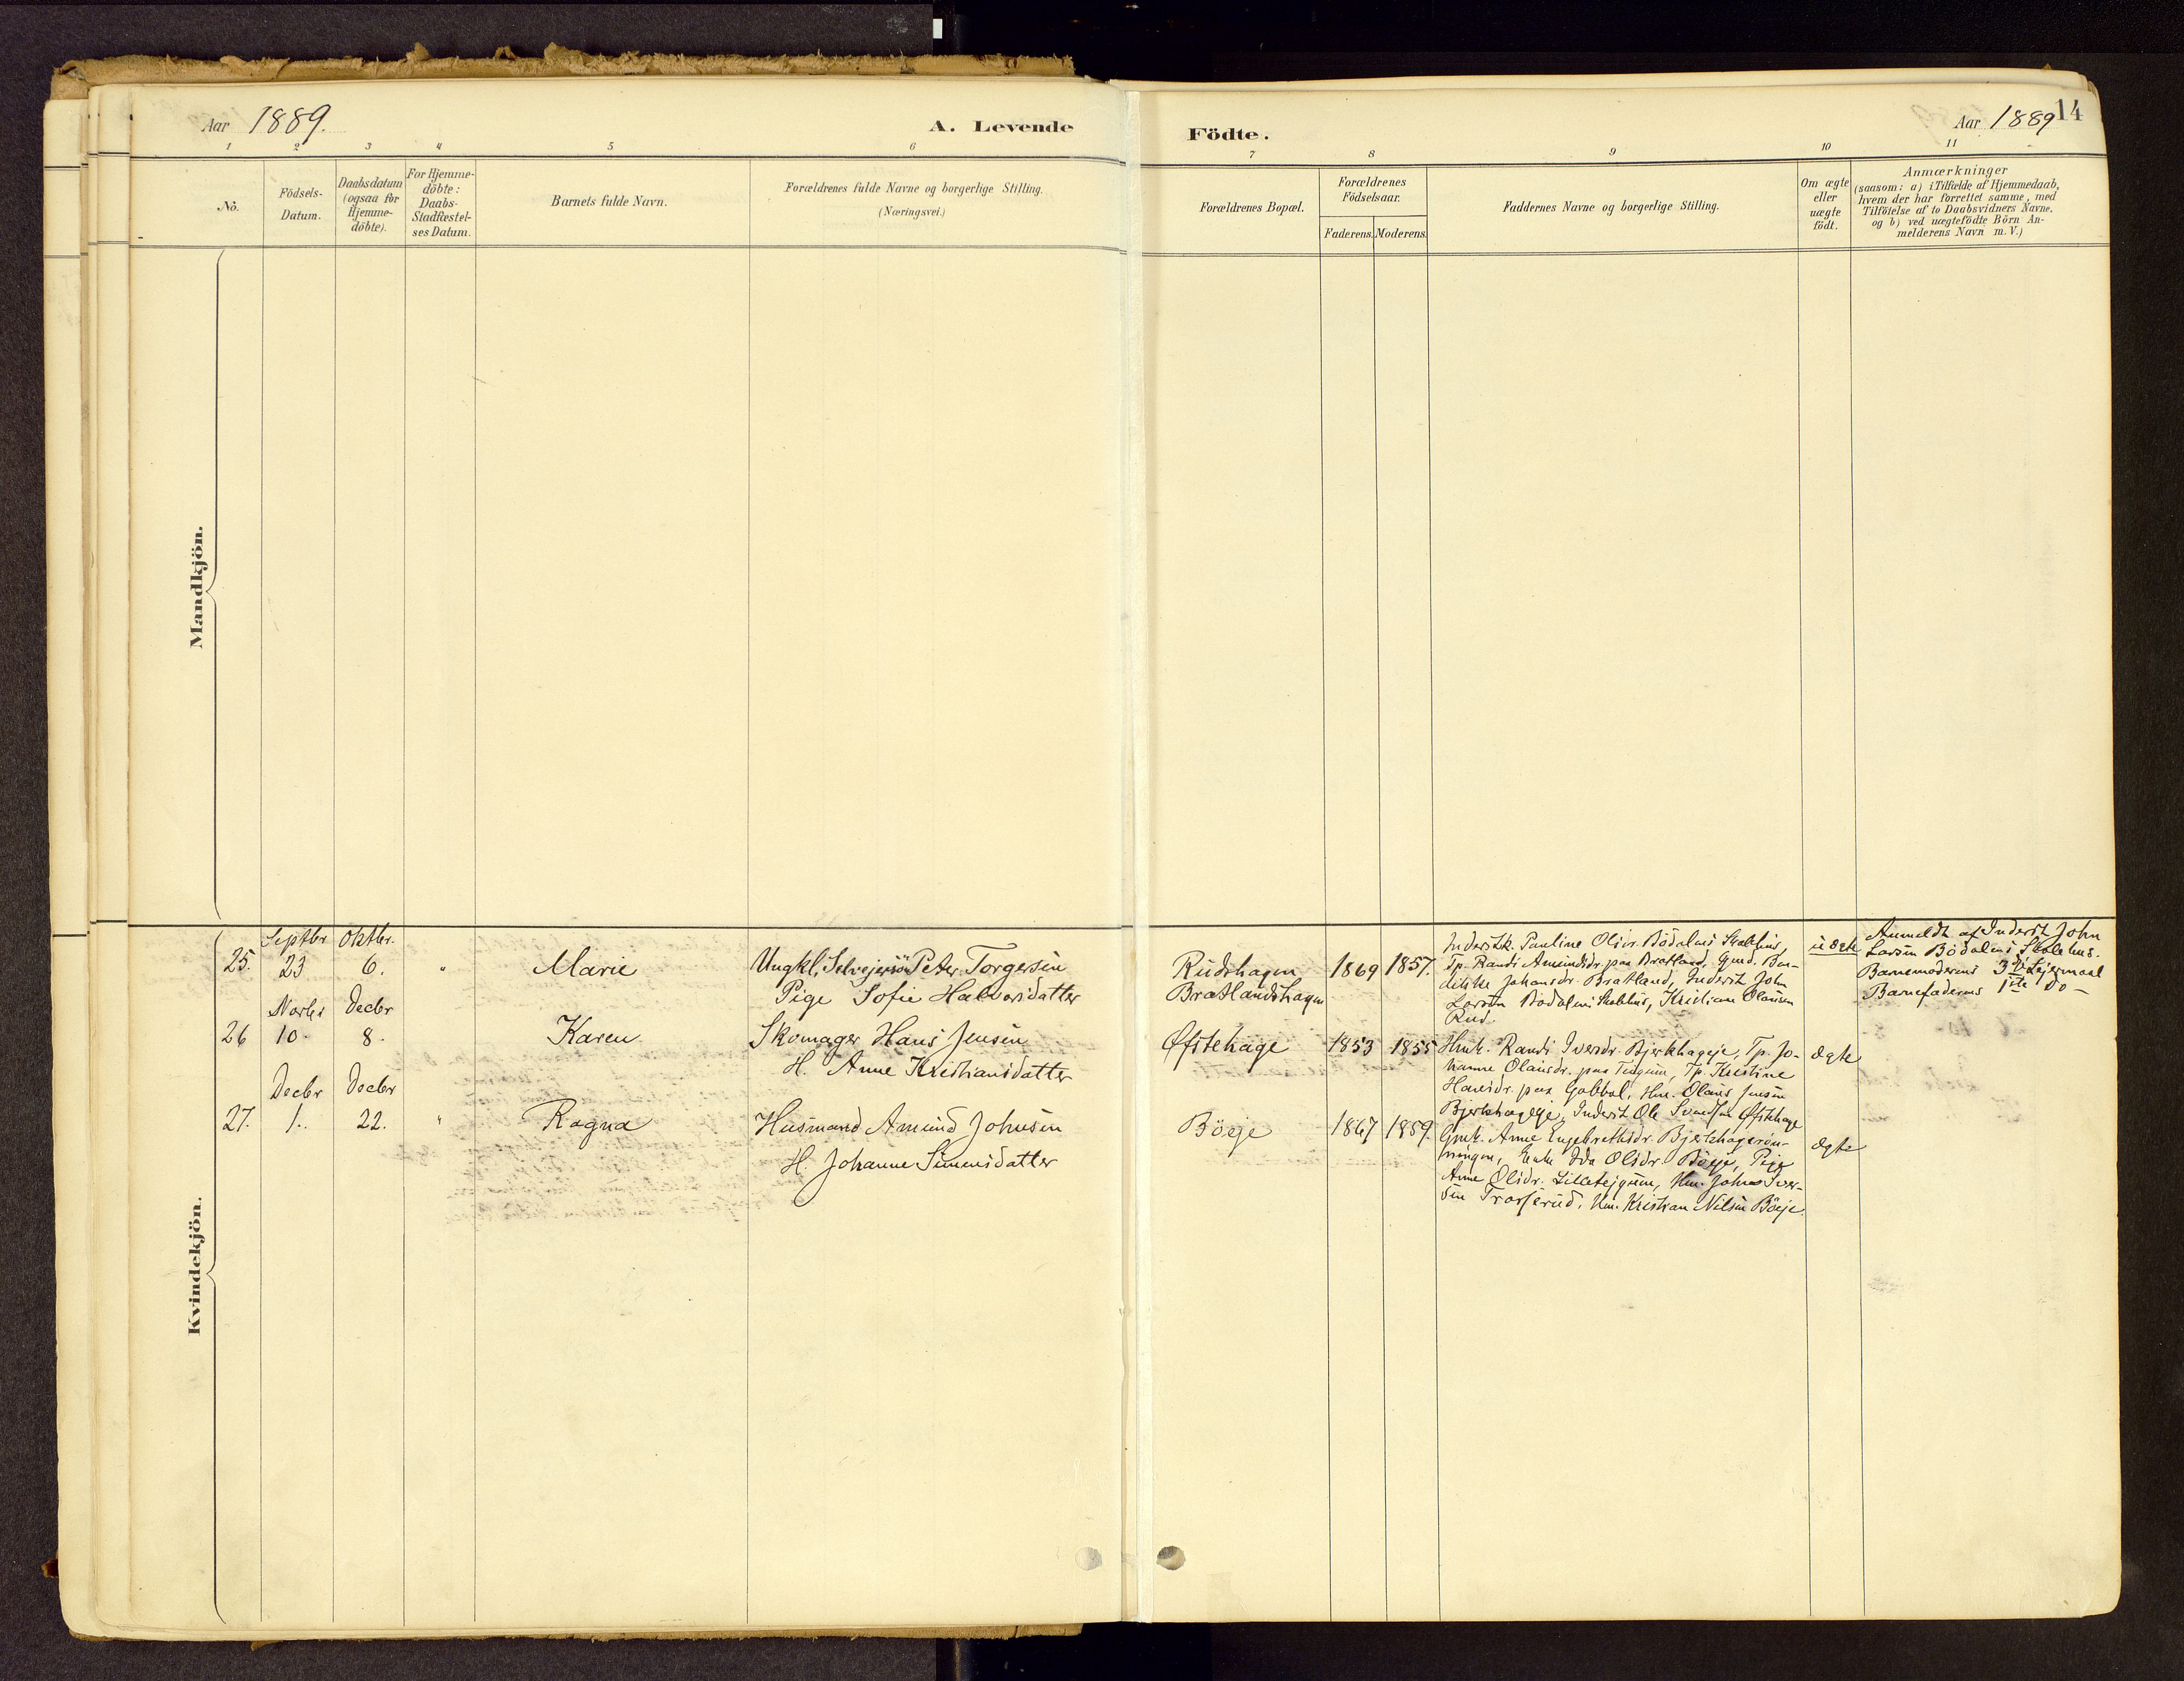 Aar 1889.
A. Levende
Födte.
Aar 1889
14
1 2 3 4 5 6 7 8 9 10 11
No.
Födsels-
Datum.
Daabsdatum
(ogsaa for
Hjemme-
döbte).
For Hjemme-
döbte:
Daabs-
Stadfæstel-
ses Datum.
Barnets fulde Navn.
Forældrenes fulde Navne og borgerlige Stilling.
(Næringsvei.)
Forældrenes Bopæl.
Forældrenes
Födselsaar.
Faderens. Moderens.
Faddernes Navne og borgerlige Stilling.
Om ægte
eller
uægte
födt.
Anmærkninger
(saasom: a) i Tilfælde af Hjemmedaab,
hvem der har forrettet samme, med
Tilföielse af to Daabsvidners Navne.
og b) ved uægtefödte Börn An-
melderens Navn m. V.)
Mandkjön.
Kvindekjön.
Septbr Oktbr.
25. 23 6. " Marie
Ungkl. Selvejersön Peter Torgersen
Pige Sofie Halvorsdatter
Rudshagen
Bratlandshagen
1869 1857.
Inderstk. Pauline Olsdr. Bödalens Skolehus,
Tp. Randi Amundsdr. paa Bratland, Gmd. Ben-
dikke Johansdr. Bratland, Inderst John
Larsen Bödalens Skolehus, Kristian Olausen
Rud.
uægte
Anmeldt af Inderst John
Larsen Bödalens Skolehus.
Barnemoderens 3die Lejermaal
Barnefaderens 1ste do -
Novbr Decbr
26 10. 8. Karen
Skomager Hans Jensen
H. Anne Kristiansdatter
Øfstehage
1853 1855
Hmk. Randi Iversdr. Bjerkhageje, Tp. Jo-
hanne Olausdr. paa Tejgum, Tp. Kristine
Hansdr. paa Gabbol, Hm. Olaus Jensen
Bjerkhageeje, Inderst Ole Svendsen Øfstehage
ægte
Decbr Decbr
27. 1. 22. " Ragna
Husmand Amund Johnsen
H. Johanne Simensdatter
Böeje
1867 1859.
Gmk. Anne Engebrethsdr. Bjerkhagerön-
ningen, Enke Ida Olsdr. Böeje, Pige
Anne Olsdr. Lilletejgum, Hm. Johns Iver-
sen Trosserud, Um. Kristian Nilsen Böeje.
ægte